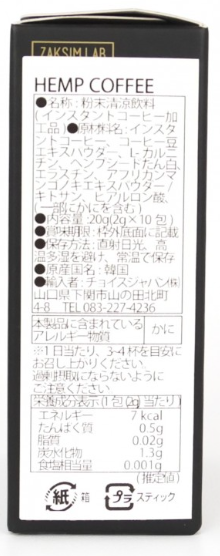 ZAKSIM LAB
HEMP COFFEE
●名称：粉末清涼飲料
(インスタントコーヒー加
工品) ●原材料名：インスタ
ントコーヒー、コーヒー豆
エキスパウダー、L-カルニ
チン、ヘンプシードたん白、
エラスチン、アフリカンマ
ンゴノキエキスパウダー/
キトサン、ヒアルロン酸、
(一部にかにを含む)
●内容量：20g(2g×10包)
●賞味期限：枠外底面に記載
●保存方法：直射日光、高
温多湿を避け、常温で保存
●原産国名：韓国
●輸入者：チョイスジャパン㈱
山口県下関市山の田北町
4-8 TEL 083-227-4236
本製品に含まれている
アレルギー物質
かに
※1日当たり、3-4杯を目安に
お召し上がりください。
過剰摂取にならないように
ご注意ください
栄養成分表示(1包(2g)当たり)
エネルギー 7 kcal
たんぱく質 0.5g
脂質 0.02g
炭水化物 1.3g
食塩相当量 0.001g
(推定値)
紙 箱
プラ スティック